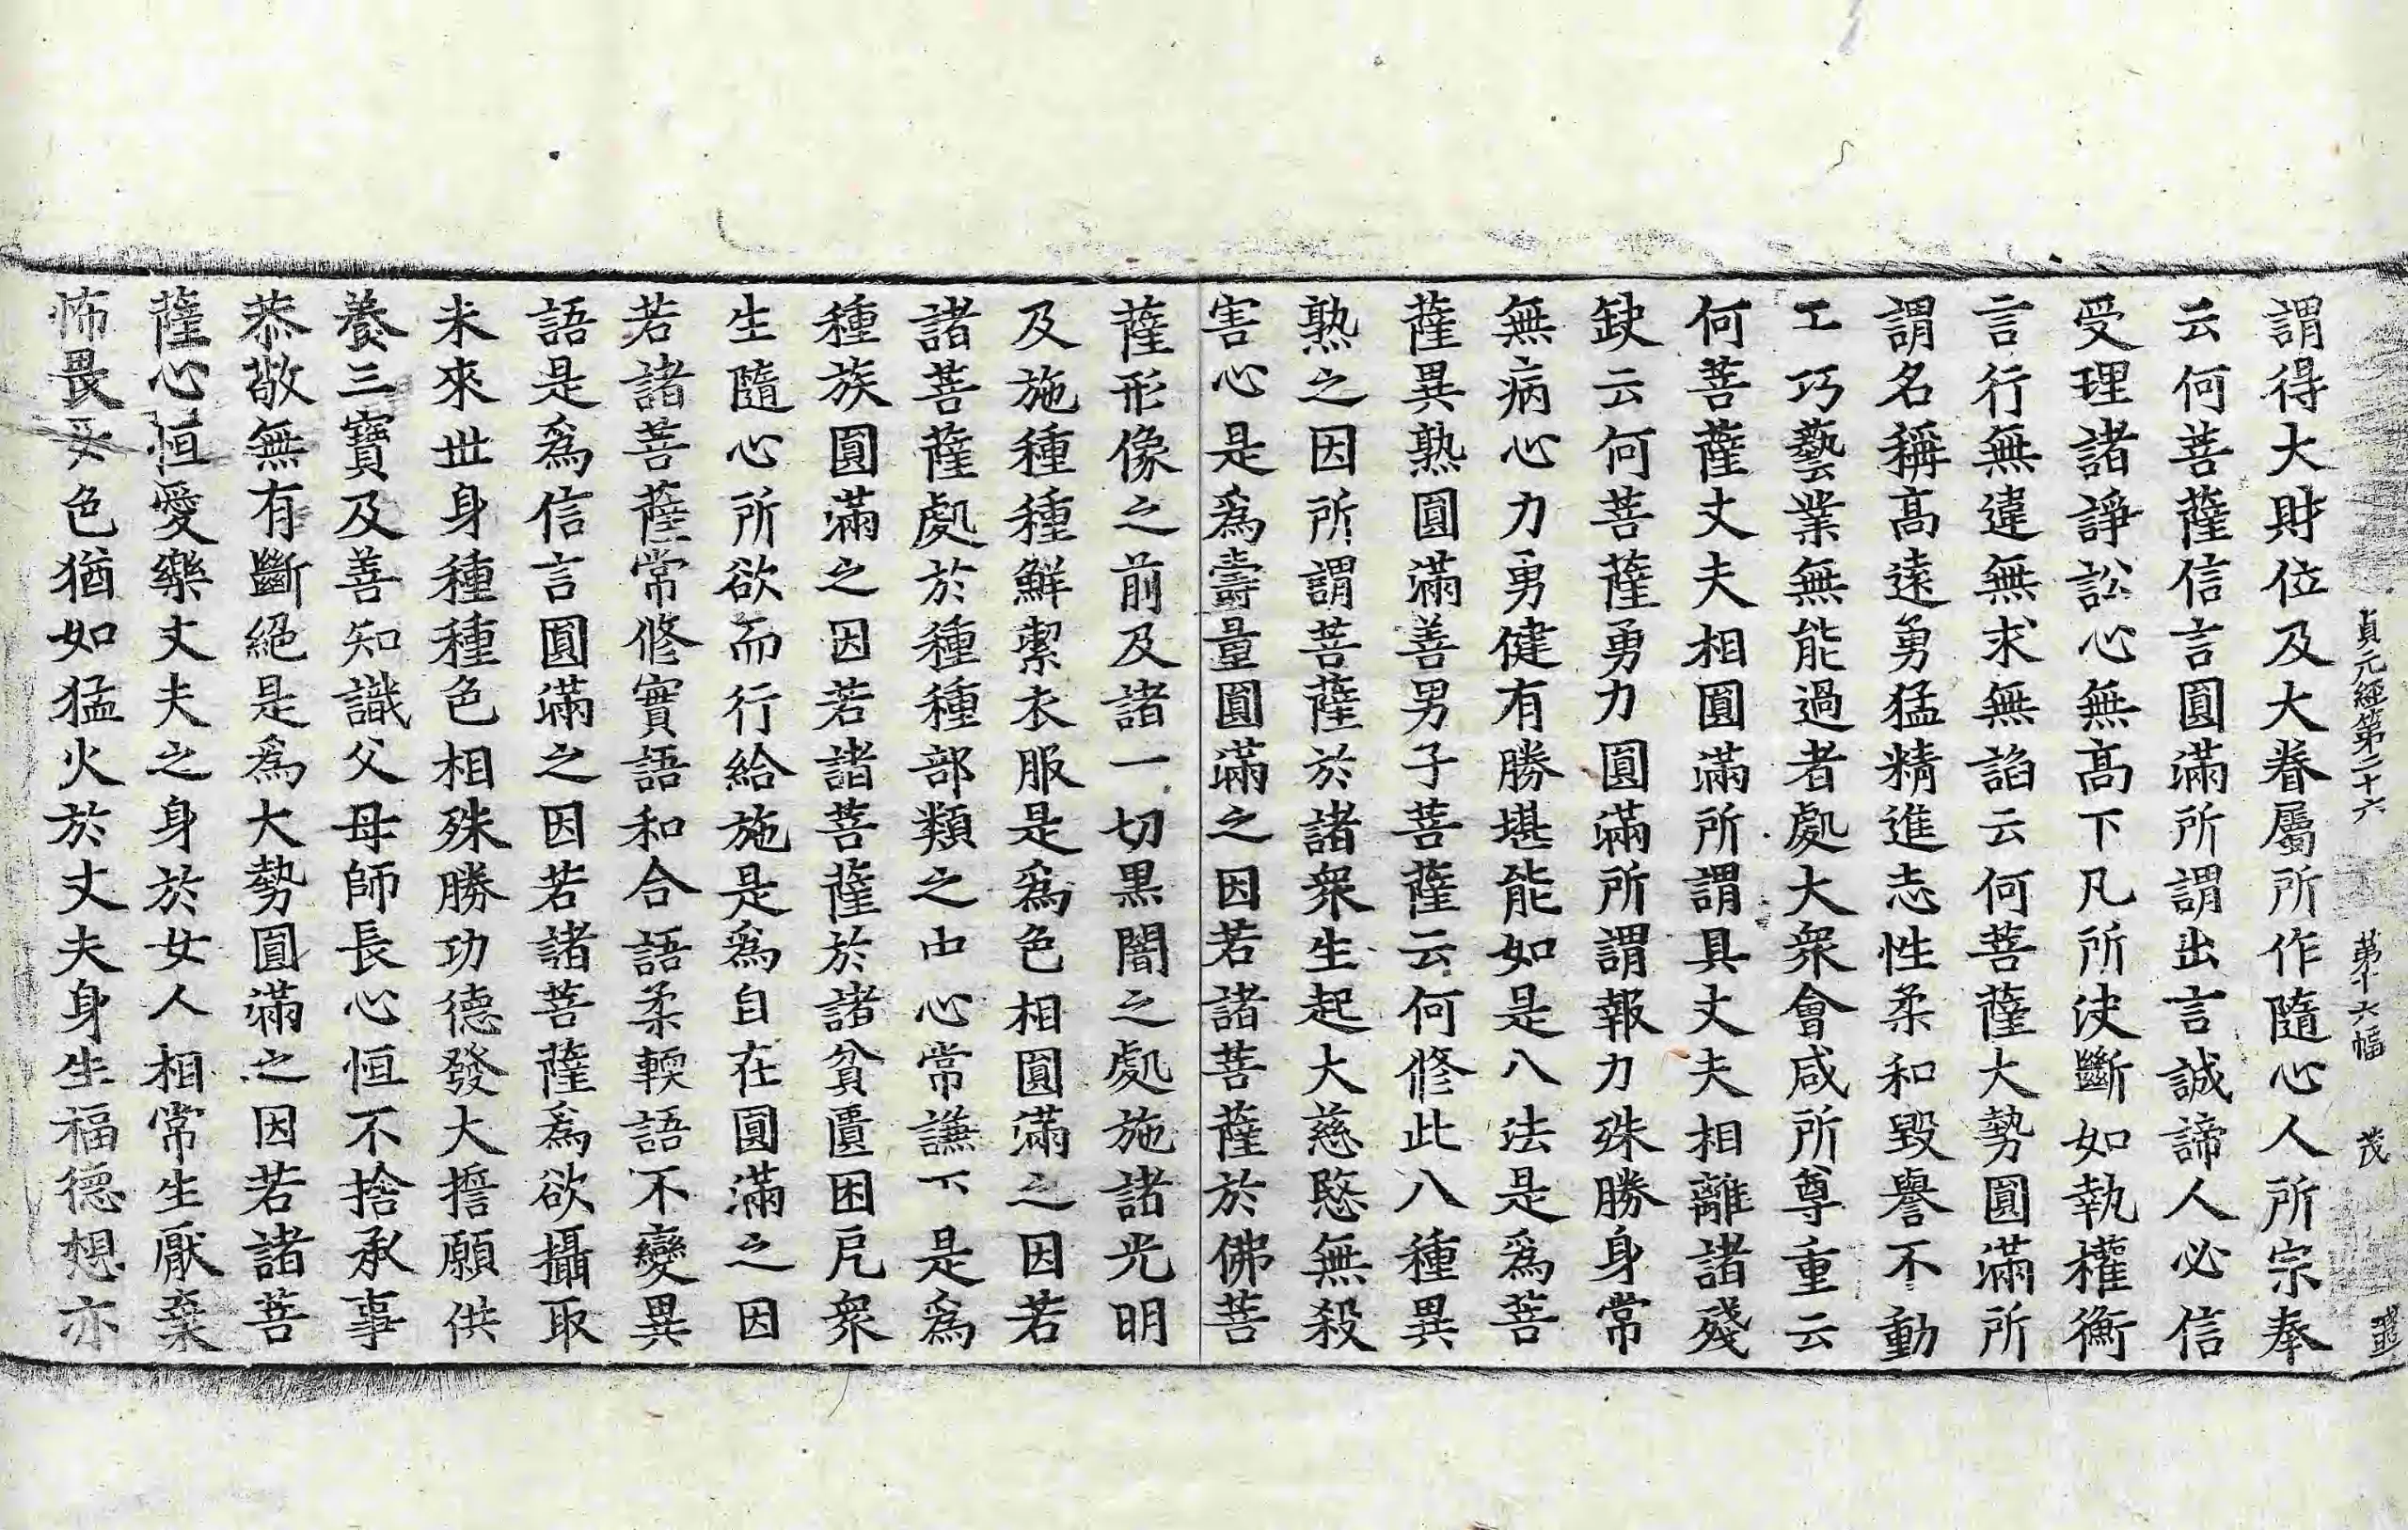 貞元經第二十六 第十六幅 茂
謂得大財位及大眷屬所作隨心人所宗奉
云何菩薩信言圓滿所謂出言誠諦人必信
受理諸諍訟心無高下凡所決斷如執權衡
言行無違無求無諂云何菩薩大勢圓滿所
謂名稱高遠勇猛精進志性柔和毀譽不動
工巧藝業無能過者處大衆會咸所尊重云
何菩薩丈夫相圓滿所謂具丈夫相離諸殘
缺云何菩薩勇力圓滿所謂報力殊勝身常
無病心力勇健有勝堪能如是八法是爲菩
薩異熟圓滿善男子菩薩云何修此八種異
熟之因所謂菩薩於諸衆生起大慈愍無殺
害心是爲壽量圓滿之因若諸菩薩於佛菩
薩形像之前及諸一切黑闇之處施諸光明
及施種種鮮潔衣服是爲色相圓滿之因若
諸菩薩處於種種部類之中心常謙下是爲
種族圓滿之因若諸菩薩於諸貧匱困戹衆
生隨心所欲而行給施是爲自在圓滿之因
若諸菩薩常修實語和合語柔輭語不變異
語是爲信言圓滿之因若諸菩薩爲欲攝取
未來世身種種色相殊勝功德發大誓願供
養三寶及善知識父母師長心恒不捨承事
恭敬無有斷絕是爲大勢圓滿之因若諸菩
薩心恒愛樂丈夫之身於女人相常生厭棄
怖畏女色猶如猛火於丈夫身生福德想亦